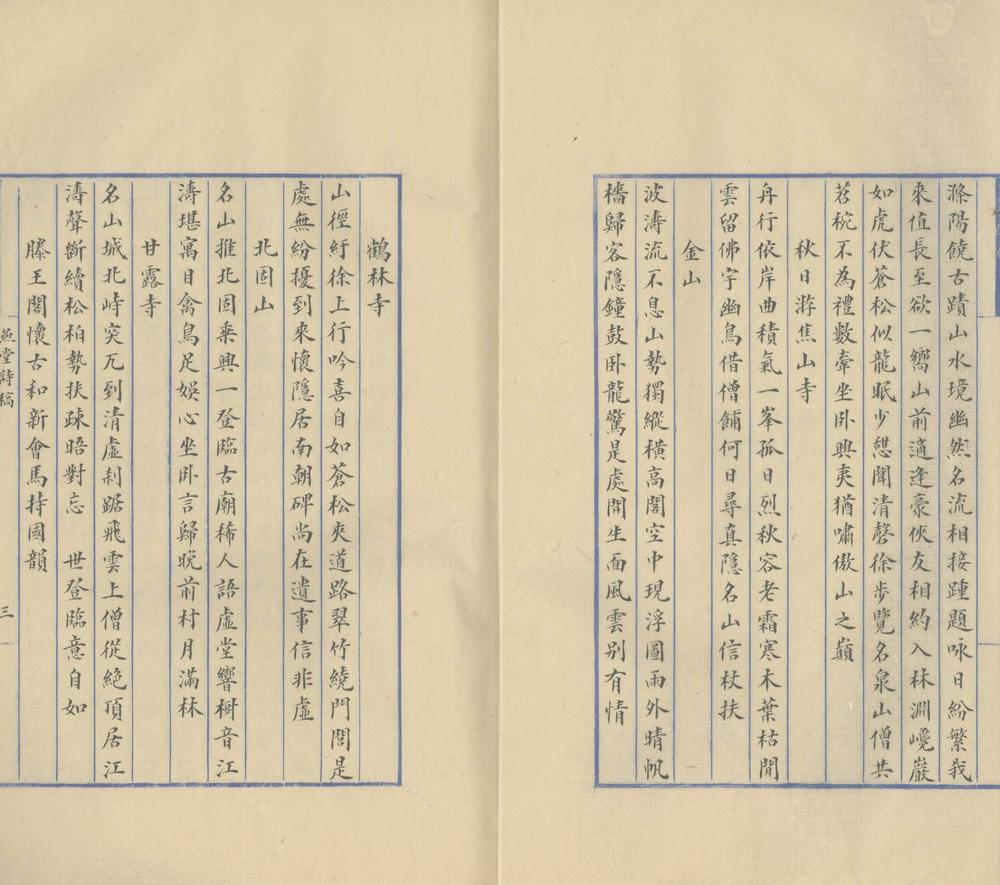 滁陽饒古蹟山水境幽然名流相接踵題咏日紛繁我
來值長至欲一嚮山前適逢豪俠友相約入林淵巉巖
如虎伏蒼松似龍眠少憇聞清磬徐步覽名泉山僧共
茗椀不為禮數牽坐卧興夷猶嘯傲山之巔
秋日游焦山寺
舟行依岸曲積氣一峯孤日烈秋容老霜寒木葉枯閒
雲留佛宇幽鳥借僧餔何日尋真隱名山信杖扶
金山
波濤流不息山勢獨縱橫高閣空中現浮圖雨外晴帆
檣歸客隱鐘鼓卧龍驚是處閒生面風雲別有情
鶴林寺
山徑紆徐上行吟喜自如蒼松夾道路翠竹繞門閭是
處無紛擾到來懷隱居南朝碑尚在遺事信非虛
北固山
名山推北固乘興一登臨古廟稀人語虛堂響樹音江
濤堪寓目禽鳥足娛心坐卧言歸晚前村月滿林
甘露寺
名山城北峙突兀到清虛刹踞飛雲上僧從絕頂居江
濤聲斷續松柏勢扶疎晤對忘 世登臨意自如
滕王閣懷古和新會馬持國韻
燕堂詩稿
三